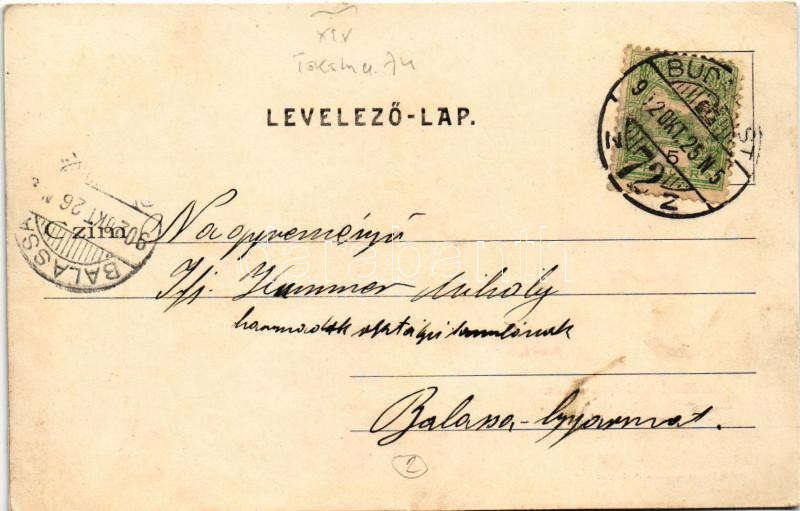 XIV
LEVELEZŐ-LAP.
BUDAPEST
902 OKT. 25. N 5
72
Z
5
BALASSA
902 OKT 26
Czim Nagyreményű
Ifj. Kummer Mihály
harmadik osztályú tanulónak
Balassa-Gyarmat.
2
Darabanth